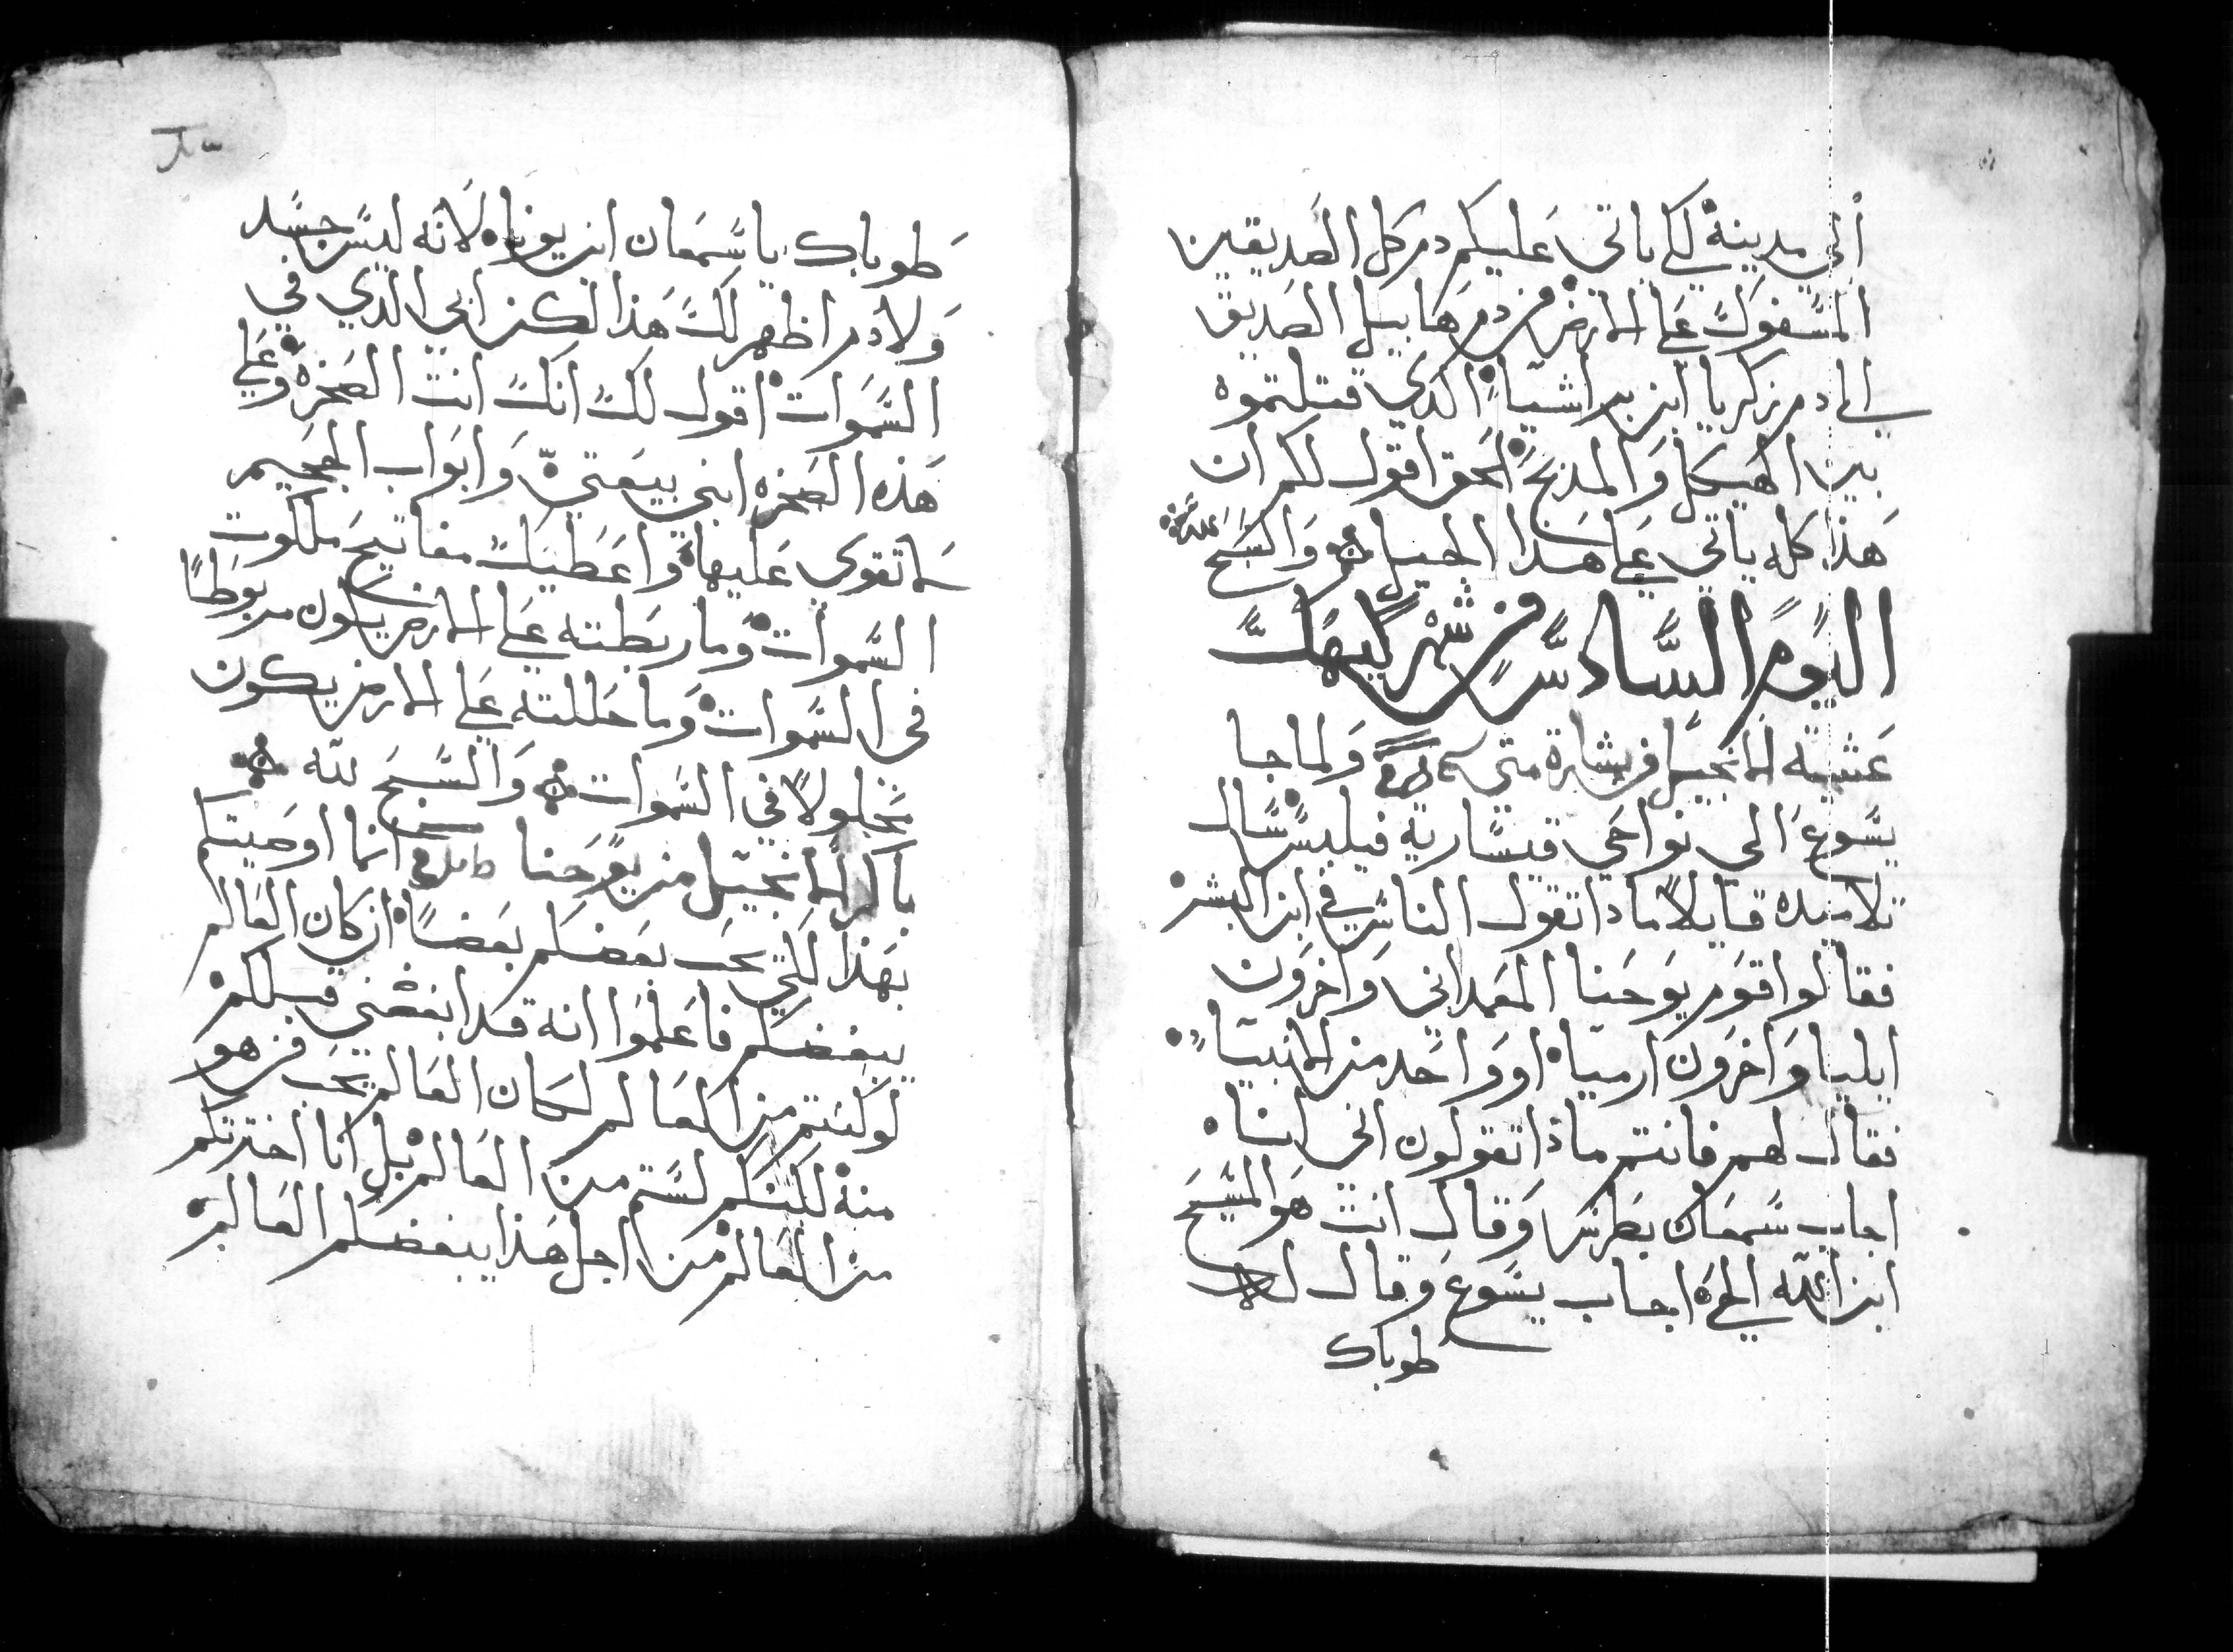 الي مدينة لكي ياتي عليكم دم كل الصديقين
المسفوك علي الارض من دم هابيل الصديق
الي دم زكريا ابن براشيا الدي قتلتموه
بين الهيكل والمدبح الحق اقول لكم ان
هذا كله ياتي علي هدا الجيل والسبح لله
اليوم السادس من شهر كيهك
عشية الانجيل من بشارة متي ولما جا
يسوع الى نواحي قيسارية فيلبس سال
تلاميده قايلا مادا تقول الناس في ابن البشر
فقالوا قوم يوحنا المعمداني واخرون
ايليا واخرون ارميا او واحد من الانبيا
فقال لهم فانتم ماذا تقولون اني انا
اجاب سمعان بطرس وقال انت هو المسيح
ابن الله الحي اجاب يسوع وقال له
طوباك
طوباك يا سمعان ابن يونا لانه ليس جسد
ولا دم اظهر لك هذا لكن ابي الدي في
السموات اقول لك انك انت الصخره وعلي
هذه الصخره ابني بيعتي وابواب الجحيم
لا تقوى عليها واعطيك مفاتيح ملكوت
السموات وما ربطته علي الارض يكون مربوطا
في السموات وما حللته علي الارض يكون
محلولا في السموات والسبح لله
باكر الانجيل من يوحنا انما اوصيتكم
بهذا لكي يحب بعضكم بعضا ان كان العالم
يبغضكم فاعلموا انه قد ابغضني قبلكم
لو كنتم من العالم لكان العالم يحب من هو
منه لكنكم لستم من العالم بل انا اخترتكم
من العالم من اجل هذا يبغضكم العالم